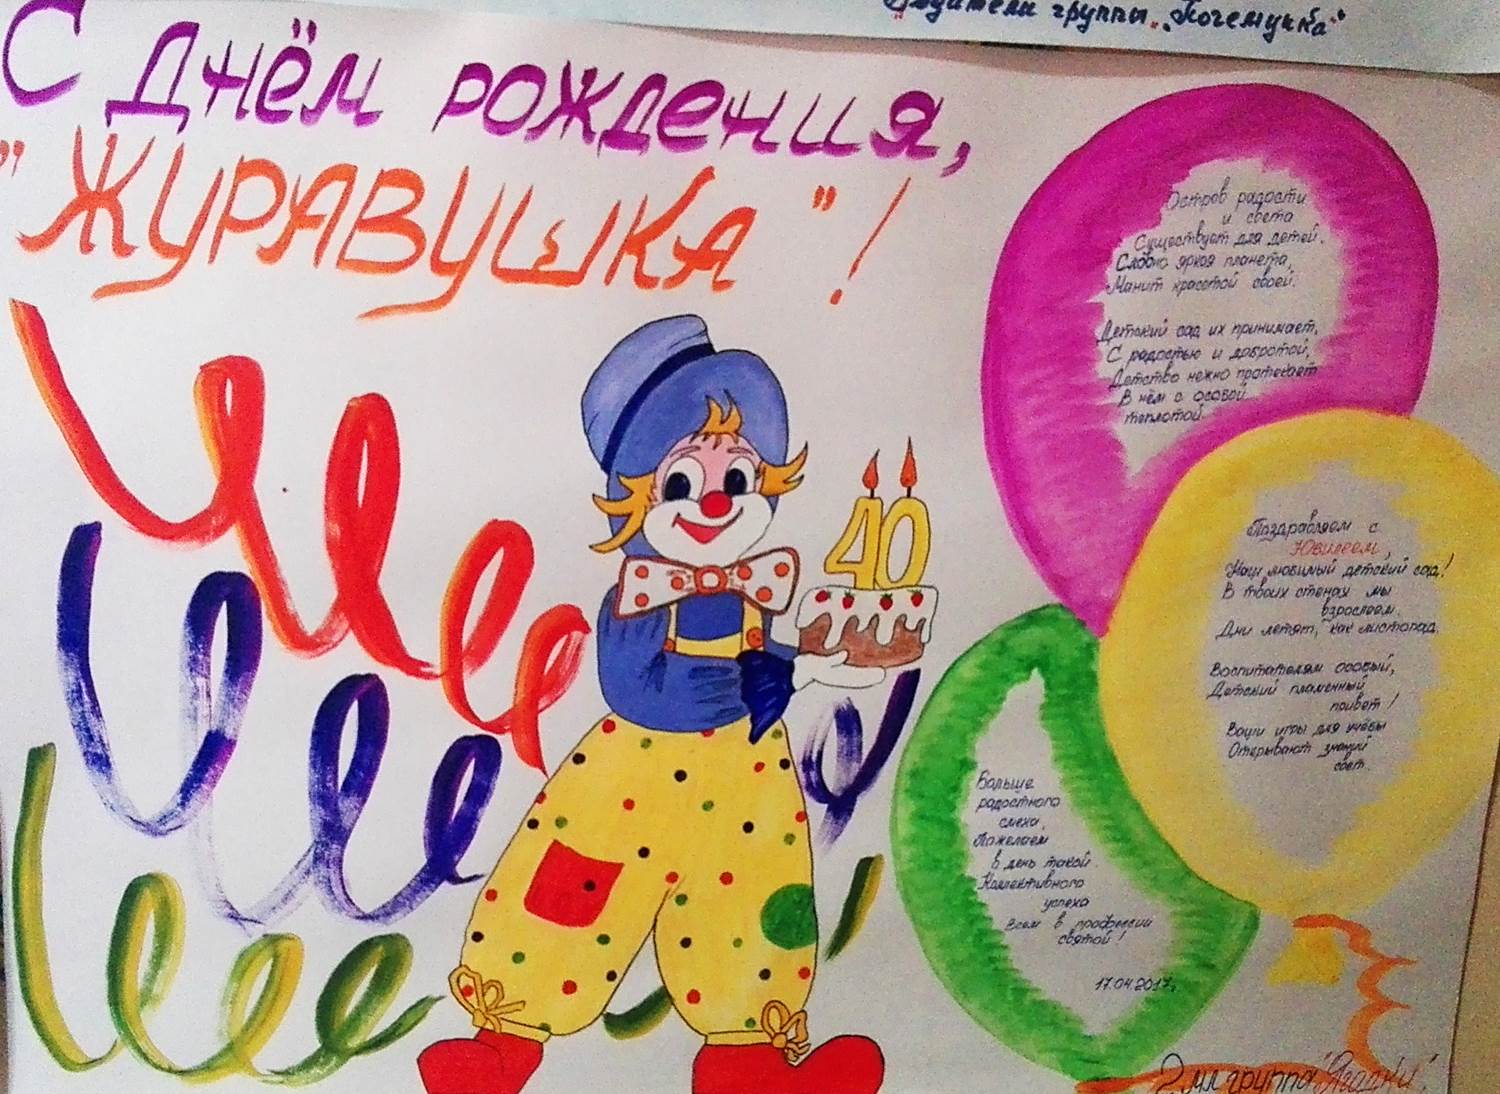 Родители группы „Почемучка"
С Днём рождения,
"ЖУРАВУШКА"!
Остров радости
и света
Существует для детей.
Словно яркая планета,
Манит красотой своей.
Детский сад их принимает,
С радостью и добротой,
Детство нежно протекает
В нём с особой
теплотой.
Поздравляем с
Юбилеем,
Наш любимый детский сад!
В твоих стенах мы
взрослеем.
Дни летят, как листопад.
Воспитателям особый,
Детский пламенный
привет!
Ваши игры для учёбы
Открывают знаний
свет.
40
Больше
радостного
смеха,
Пожелаем
в день такой.
Коллективного
успеха
Всем в профессии
святой!
17.04.2017г.
2 мл группа "Ягодки".